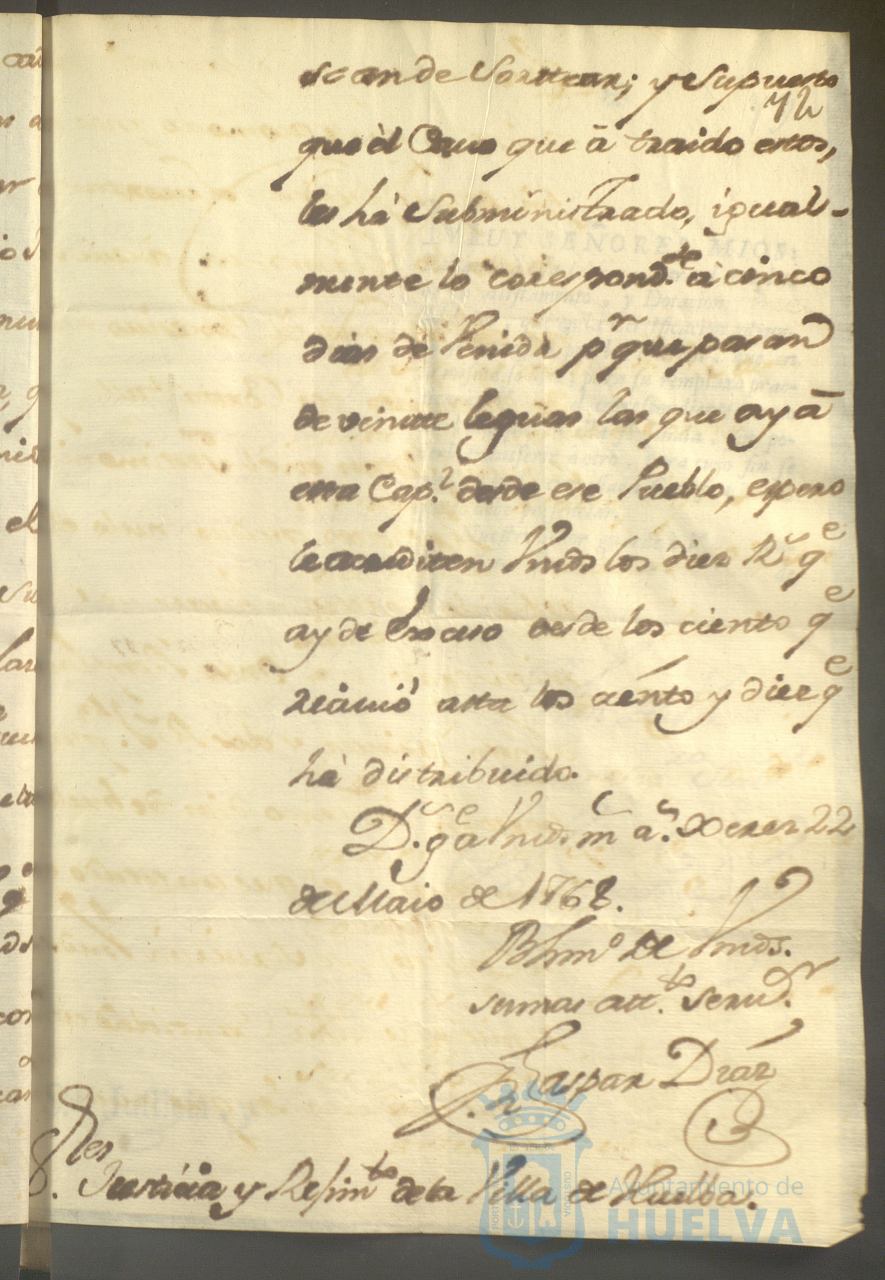 de Sorttear; y Supuesto
72
que èl Cavo que ā traido estos,
les há Subministrado, igual-
mente lo correspond.te à cinco
dias de Venida p.r que pasan
de veinte leguas las que ay ā
esta Cap.l desde ese Pueblo, espero
le acrediten Vmds los diez R.s q.e
ay de Exceso desde los ciento q.e
reciuió asta los ciento y diez q.e
há distribuido.
D.s g.e a Vmds. m.s a.s Xerez 22
de Maio de 1768.
BLm.o de Vmds.
su mas att.to seru.or
Gaspar Díaz
S.res Justicia y Rejim.to de la Villa de Huelba.
Ayuntamiento de
HUELVA